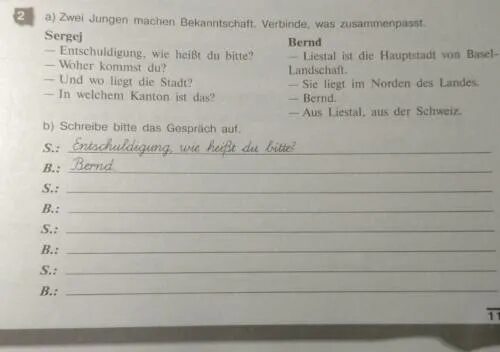 2 a) Zwei Jungen machen Bekanntschaft. Verbinde, was zusammenpasst.
Sergej
— Entschuldigung, wie heißt du bitte?
— Woher kommst du?
— Und wo liegt die Stadt?
— In welchem Kanton ist das?
Bernd
— Liestal ist die Hauptstadt von Basel-
Landschaft.
— Sie liegt im Norden des Landes.
— Bernd.
— Aus Liestal, aus der Schweiz.
b) Schreibe bitte das Gespräch auf.
S.: Entschuldigung, wie heißt du bitte?
B.: Bernd.
S.:
B.:
S.:
B.:
S.:
B.:
11